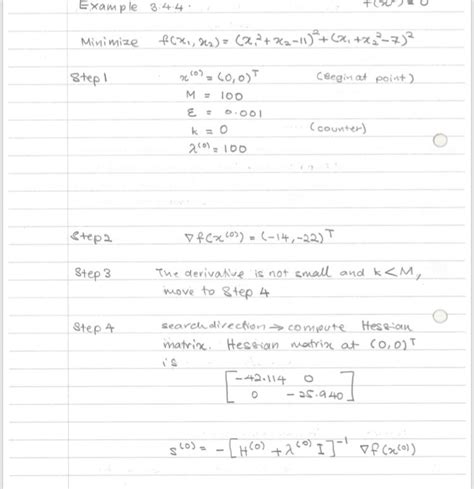 Example 3.4.4.
Minimize f(x₁, x₂) = (x₁² + x₂ - 11)² + (x₁ + x₂² - 7)²
Step 1 x⁽⁰⁾ = (0, 0)ᵀ (Begin at point)
M = 100
ε = 0.001
k = 0 (counter)
λ⁽⁰⁾ = 100
Step 2 ∇f(x⁽⁰⁾) = (-14, -22)ᵀ
Step 3 The derivative is not small and k < M,
move to Step 4
Step 4 search direction → compute Hessian
matrix. Hessian matrix at (0, 0)ᵀ
is
[-42.114 0
0 -25.940]
s⁽⁰⁾ = -[H⁽⁰⁾ + λ⁽⁰⁾ I]⁻¹ ∇f(x⁽⁰⁾)